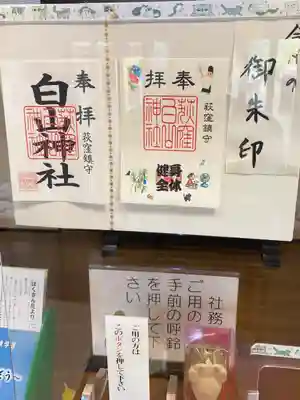 今月の
御朱印
奉拝
荻窪鎮守
白山神社
奉拝
荻窪白山神社
荻窪鎮守
健身
全休
社務
ご用の
手前の呼鈴
を押して下
さい
ご用の方は
このボタンを押して下さい
はくさんだより